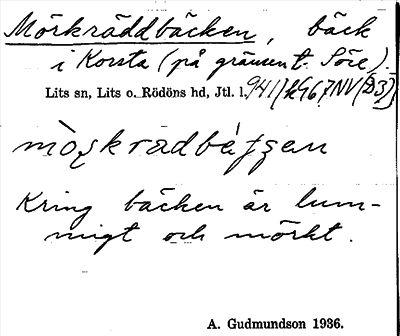 Mörkräddbäcken, bäck
i Korsta (på gränsen t. Söre).
Lits sn, Lits o. Rödöns hd, Jtl. l.
Kring bäcken är lum-
migt och mörkt.
A. Gudmundson 1936.